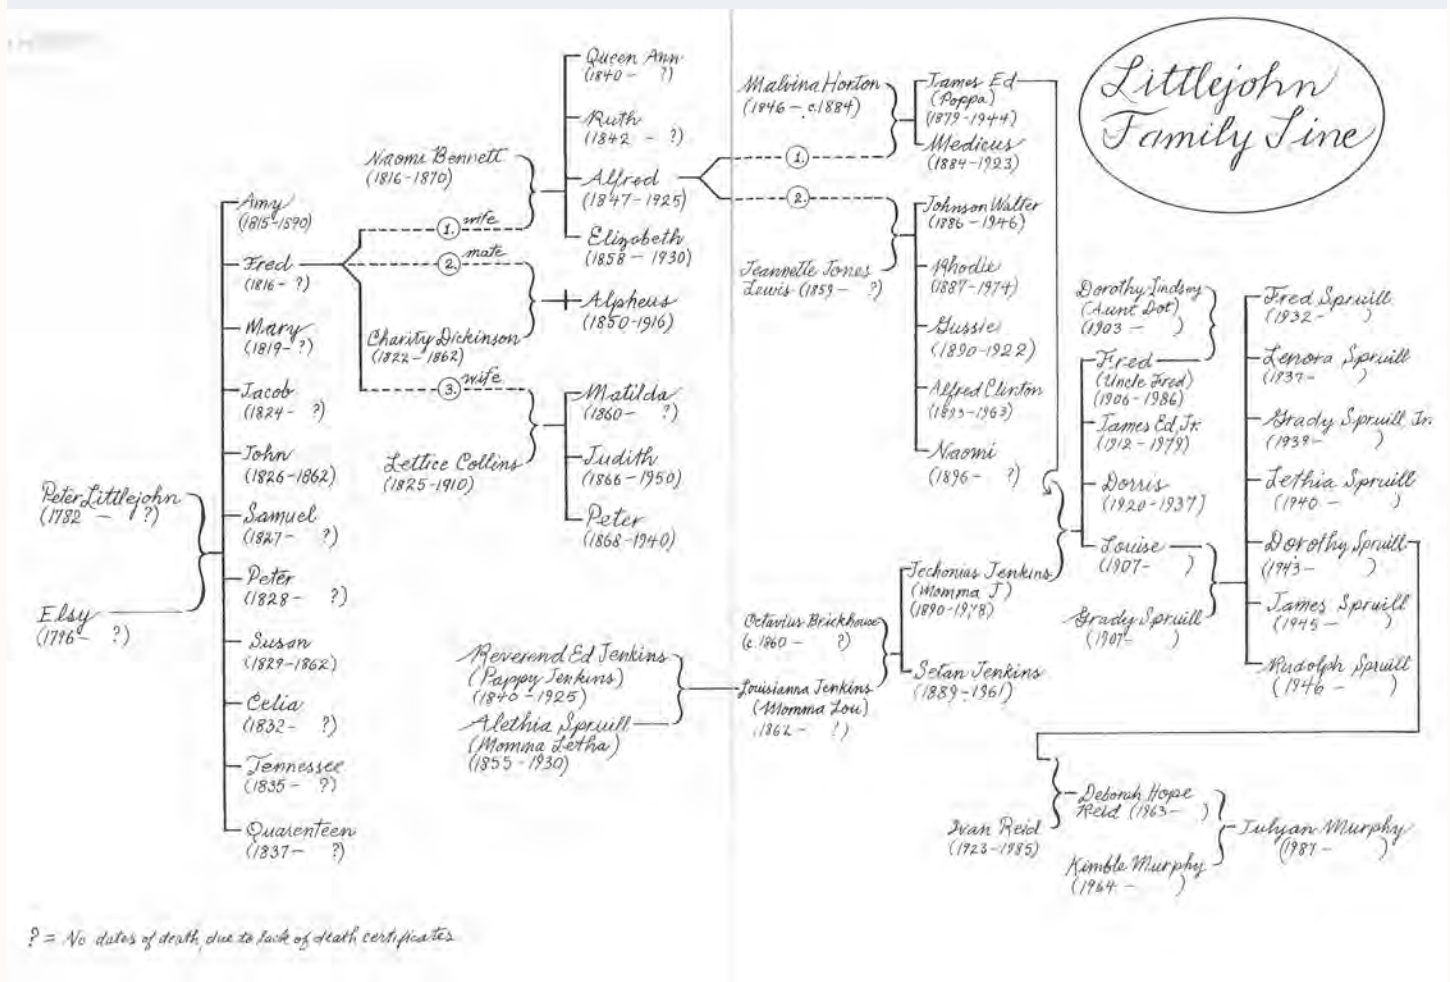 Littlejohn
Family Line
Peter Littlejohn
(1782 - ?)
Elsy
(1796 - ?)
Amy
(1815-1590)
Fred
(1816- ?)
Mary
(1819- ?)
Jacob
(1824- ?)
John
(1826-1862)
Samuel
(1827- ?)
Peter
(1828 - ?)
Susan
(1829-1862)
Celia
(1832- ?)
Tennessee
(1835 - ?)
Quarenteen
(1837- ?)
Naomi Bennett
(1816-1870)
1. wife
2. mate
Charity Dickinson
(1822-1862)
3. wife
Lettice Collins
(1825-1910)
Queen Ann
(1840 - ?)
Ruth
(1842 - ?)
Alfred
(1847-1925)
Elizabeth
(1858 - 1930)
Alpheus
(1850-1916)
Matilda
(1860 - ?)
Judith
(1866-1950)
Peter
(1868-1940)
Reverend Ed Jenkins
(Pappy Jenkins)
(1840-1925)
Alethia Spruill
(Momma Letha)
(1855-1930)
Malvina Horton
(1846 - c.1884)
1.
2.
Jeannette Jones
Lewis (1859 - ?)
James Ed
(Poppa)
(1879-1944)
Medicus
(1884-1923)
Johnson Walter
(1886-1946)
Rhodie
(1887-1974)
Gussie
(1890-1922)
Alfred Clinton
(1893-1963)
Naomi
(1896 - ?)
Octavius Brickhouse
(c.1860 - ?)
Louisianna Jenkins
(Momma Lou)
(1862 - ?)
Jechonias Jenkins
(Momma J)
(1890-1978)
Setan Jenkins
(1889-1961)
Dorothy Lindsey
(Aunt Dot)
(1903 - )
Fred
(Uncle Fred)
(1906-1986)
James Ed, Jr.
(1912-1979)
Dorris
(1920-1937)
Louise
(1907- )
Grady Spruill
(1907- )
Fred Spruill
(1932- )
Lenora Spruill
(1937- )
Grady Spruill Jr.
(1939- )
Lethia Spruill
(1940- )
Dorothy Spruill
(1943- )
James Spruill
(1945- )
Rudolph Spruill
(1946 - )
Ivan Reid
(1923-1985)
Deborah Hope
Reid (1963- )
Kimble Murphy
(1964 - )
Julyan Murphy
(1987- )
? = No dates of death, due to lack of death certificates